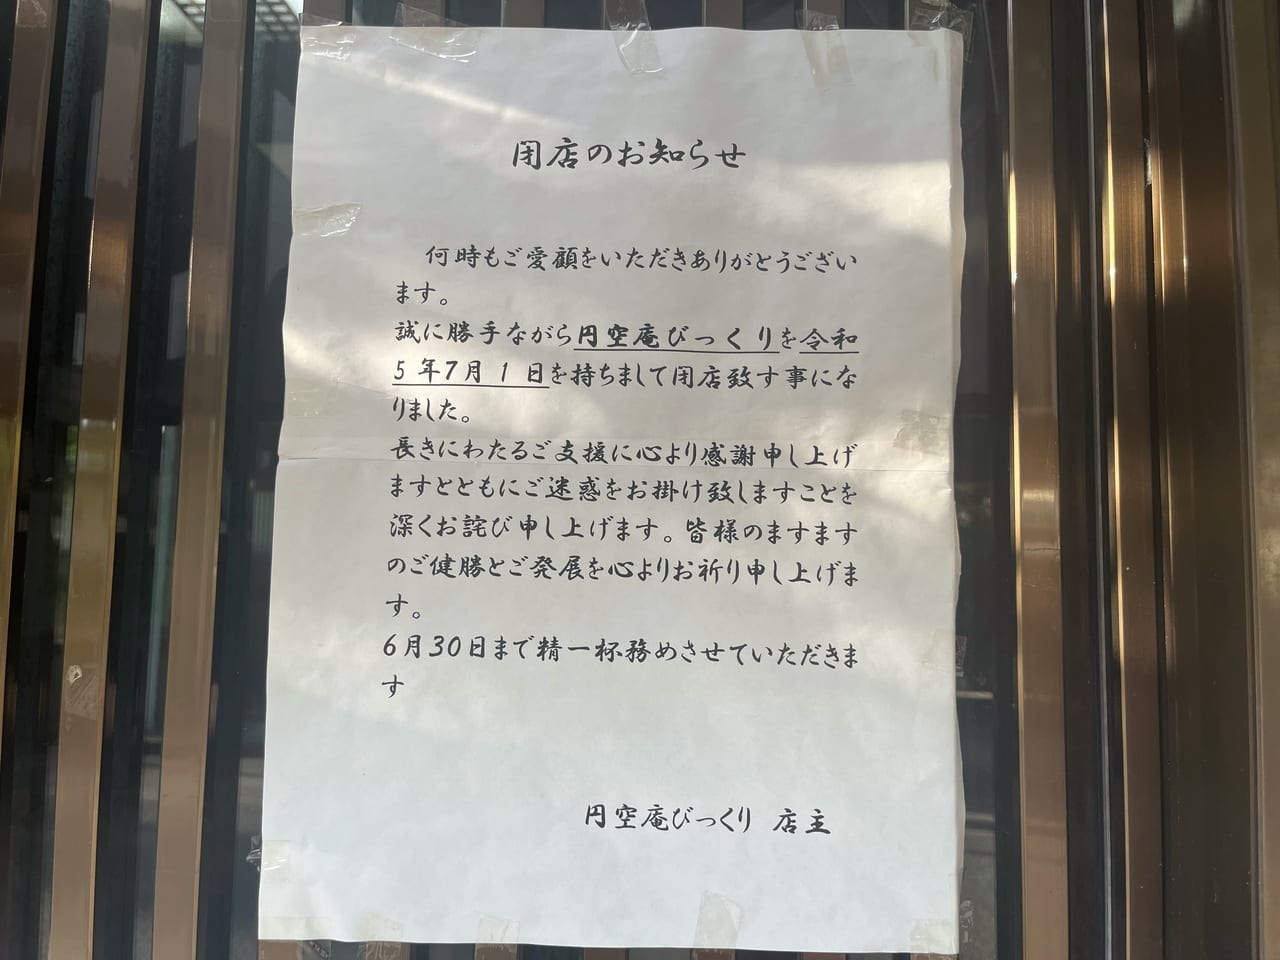 閉店のお知らせ
何時もご愛顧をいただきありがとうござい
ます。
誠に勝手ながら円空庵びっくりを令和
5年7月1日を持ちまして閉店致す事にな
りました。
長きにわたるご支援に心より感謝申し上げ
ますとともにご迷惑をお掛け致しますことを
深くお詫び申し上げます。皆様のますます
のご健勝とご発展を心よりお祈り申し上げま
す。
6月30日まで精一杯務めさせていただきま
す
円空庵びっくり 店主